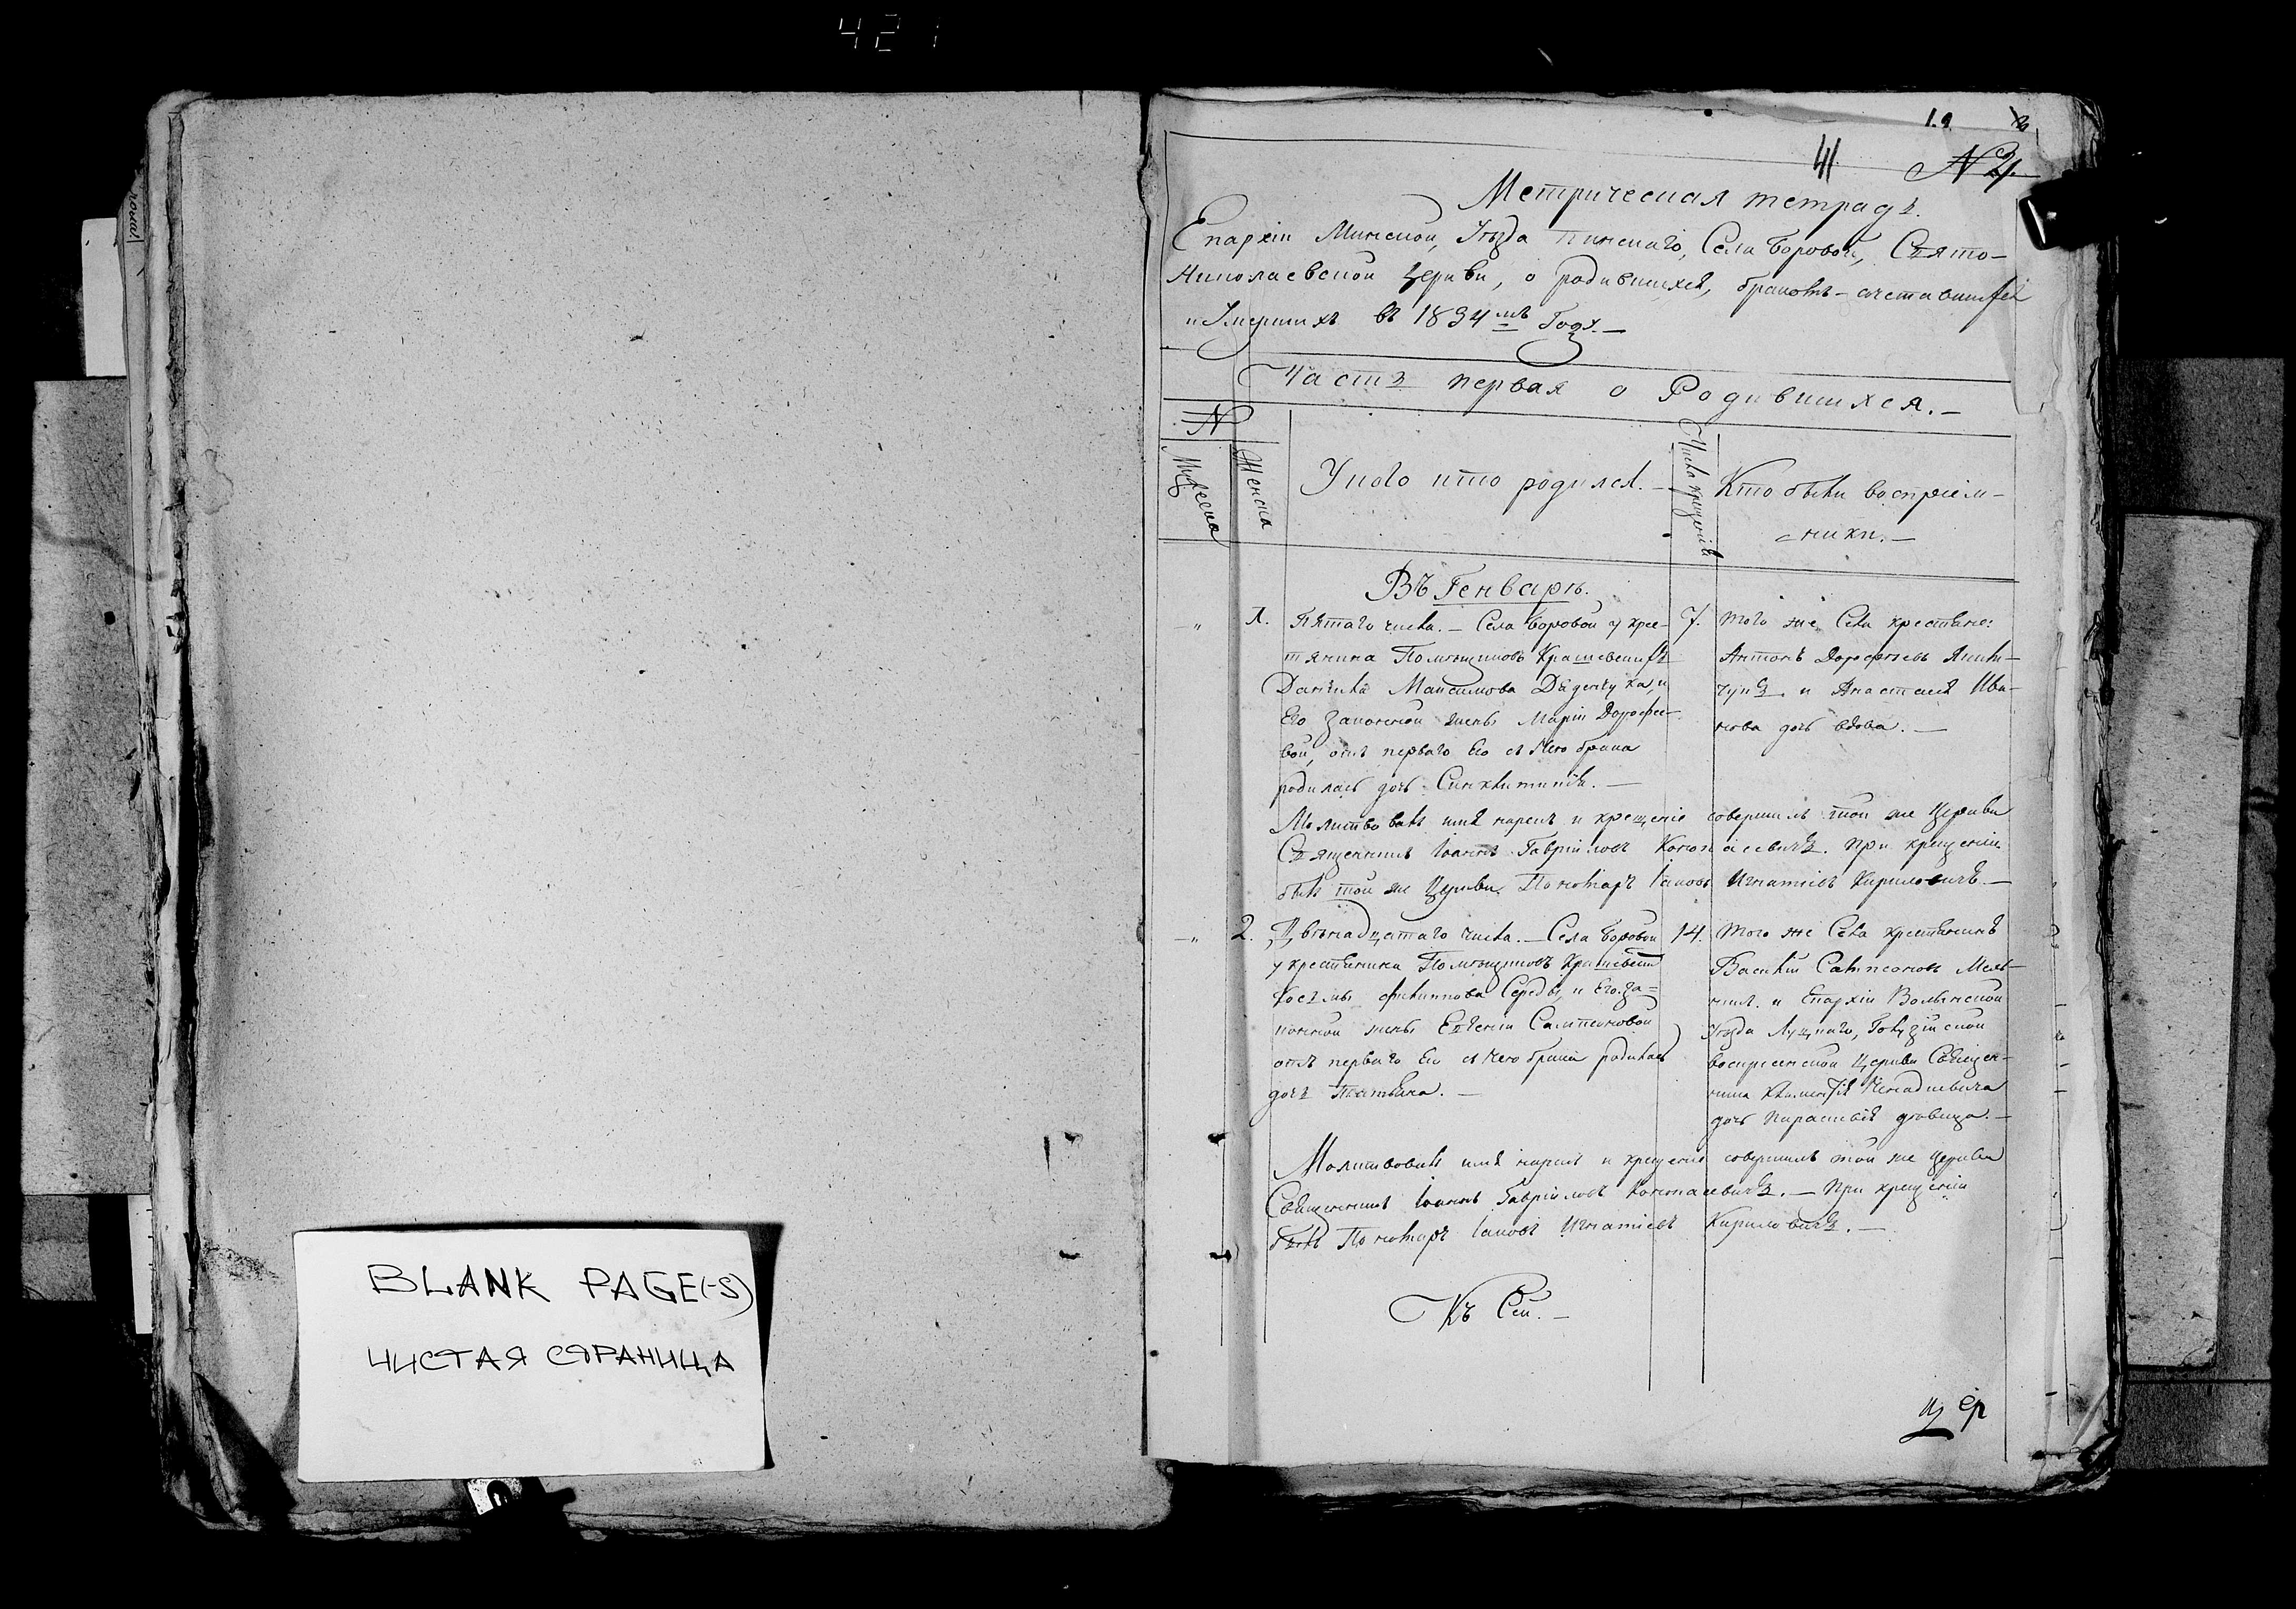 421
BLANK PAGE(-S)
ЧИСТАЯ СТРАНИЦА
41
Метрическая тетрадь.
Епархіи Минской, Уѣзда Пинскаго, Села Боровой, Свято-
Николаевской Церкви, о родившихся, бракомъ-сочетавшихся
и Умершихъ въ 1834мъ Годѣ.—
Часть первая о Родившихся.—
N
Мужеска
Женска
У кого кто родился.—
Числа крещенія
Кто были воспріем-
ники.—
Въ Генварѣ.
1.
Пятаго числа.— Села Боровой у крес-
тянина Помѣщиковъ
Данила Максимова и
Его законной жены Маріи Дорофее-
вой, отъ первого Его с Нею брака
родилась дочь Синклитикія.—
7.
того же Села крестяне:
Антонъ Дорофеевъ
и Анастасія Ива-
нова дочь вдова.—
Молитвовалъ имя нарекъ и крещеніе совершилъ той же Церкви
Священникъ Іоаннъ Гавріиловъ При крещеніи
былъ той же Церкви Пономарь Іаковъ Игнатіевъ Кириловичъ.—
2.
Двѣнадцатаго числа.— Села Боровой
у крестянина Помѣщиковъ
Космы Филиппова Середы, и Его за=
конной жены Евгеніи Сампсоновой
отъ перваго Его с Нею брака родилась
дочь Татьяна.—
14.
того же Села крестянинъ
Василій Сампсоновъ Мель-
никъ. и Епархіи Волынской
Уѣзда Луцкаго,
воскресенской Церкви Священ-
ника
дочь Параскевія дѣвица.—
Молитвовалъ имя нарекъ и крещеніе совершилъ той же Церкви
Священникъ Іоаннъ Гавріиловъ — При крещеніи
былъ Пономарь Іаковъ Игнатіевъ Кириловичъ.—
Къ Сей.—
цер